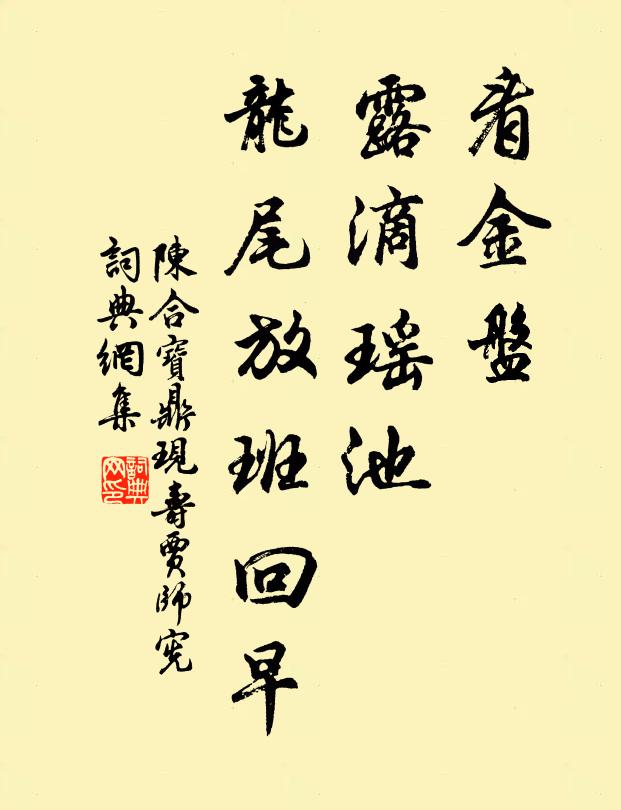 看金盤
露滴瑶池
龍尾放班回早
陳合寶鼎現壽賈師宪
詞典網集
詞典网印